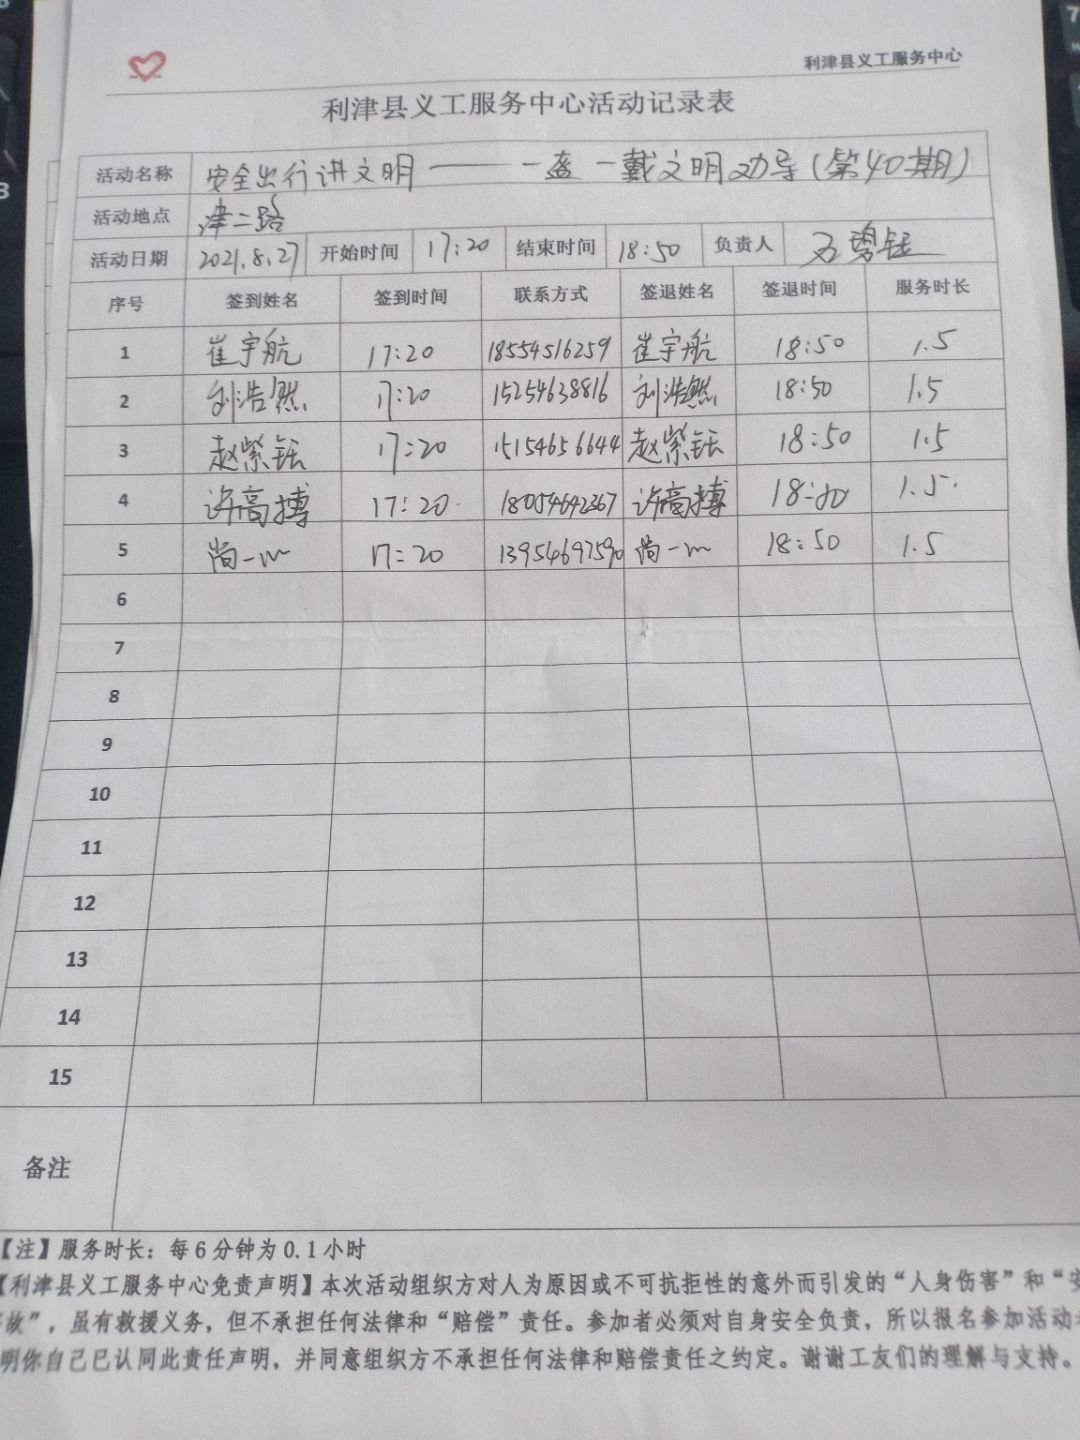 利津县义工服务中心
利津县义工服务中心活动记录表
活动名称 安全出行讲文明——一盔一戴文明劝导(第40期)
活动地点 津二路
活动日期 2021.8.27 开始时间 17:20 结束时间 18:50 负责人
序号 签到姓名 签到时间 联系方式 签退姓名 签退时间 服务时长
1 崔宇航 17:20 18554516259 崔宇航 18:50 1.5
2 刘浩然 17:20 15254638816 刘浩然 18:50 1.5
3 赵紫钰 17:20 15154656644 赵紫钰 18:50 1.5
4 许高搏 17:20 18054642367 许高搏 18:50 1.5
5 尚一 17:20 13954697590 尚一 18:50 1.5
6
7
8
9
10
11
12
13
14
15
备注
【注】服务时长：每6分钟为0.1小时
【利津县义工服务中心免责声明】本次活动组织方对人为原因或不可抗拒性的意外而引发的“人身伤害”和“安
故”，虽有救援义务，但不承担任何法律和“赔偿”责任。参加者必须对自身安全负责，所以报名参加活动
明你自己已认同此责任声明，并同意组织方不承担任何法律和赔偿责任之约定。谢谢工友们的理解与支持。